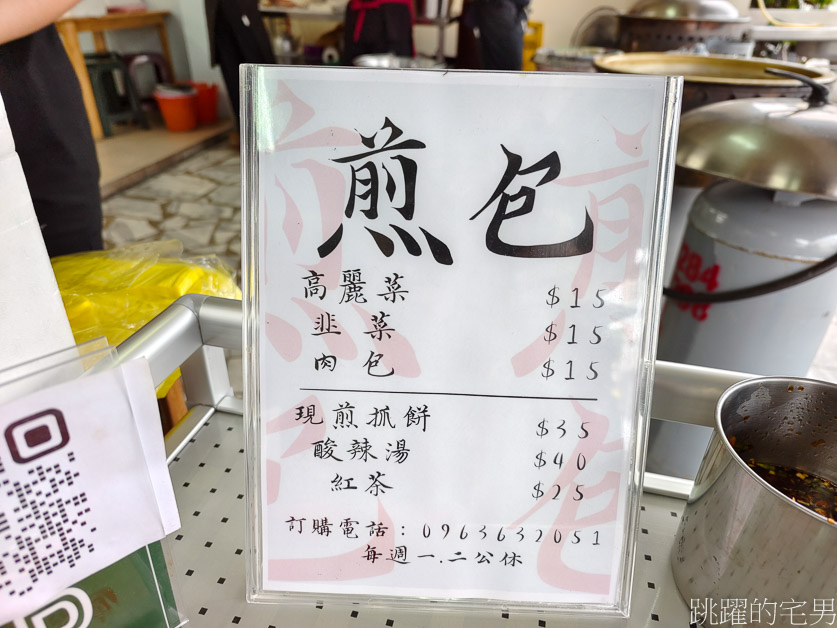 煎包
高麗菜 $15
韭菜 $15
肉包 $15
現煎抓餅 $35
酸辣湯 $40
紅茶 $25
訂購電話：0963632051
每週一.二公休
跳躍的宅男